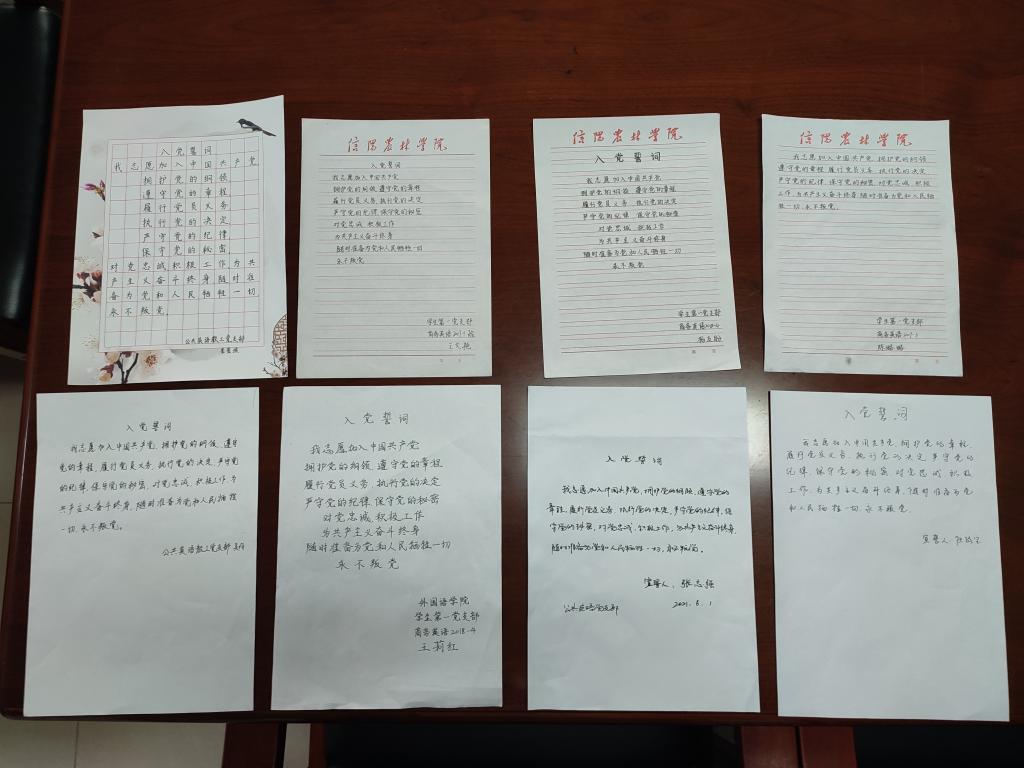 入党誓词
我志愿加入中国共产党
拥护党的纲领
遵守党的章程
履行党员义务
执行党的决定
严守党的纪律
保守党的秘密
对党忠诚积极工作为共
产主义奋斗终身随时准
备为党和人民牺牲一切
永不叛党。
公共英语教工党支部
信阳农林学院
入党誓词
我志愿加入中国共产党
拥护党的纲领 遵守党的章程
履行党员义务 执行党的决定
严守党的纪律 保守党的秘密
对党忠诚 积极工作
为共产主义奋斗终身
随时准备为党和人民牺牲一切
永不叛党
学生第一党支部
商务英语
信阳农林学院
入党誓词
我志愿加入中国共产党
拥护党的纲领 遵守党的章程
履行党员义务 执行党的决定
严守党的纪律 保守党的秘密
对党忠诚 积极工作
为共产主义奋斗终身
随时准备为党和人民牺牲一切
永不叛党
学生第一党支部
商务英语
信阳农林学院
我志愿加入中国共产党 拥护党的纲领
遵守党的章程 履行党员义务 执行党的决定
严守党的纪律 保守党的秘密 对党忠诚 积极
工作 为共产主义奋斗终身 随时准备为党和人民牺
牲一切 永不叛党。
学生第一党支部
商务英语
陈璐璐
入党誓词
我志愿加入中国共产党，拥护党的纲领，遵守
党的章程，履行党员义务，执行党的决定，严守党
的纪律，保守党的秘密，对党忠诚，积极工作，为
共产主义奋斗终身，随时准备为党和人民牺牲
一切，永不叛党。
公共英语教工党支部
入党誓词
我志愿加入中国共产党
拥护党的纲领 遵守党的章程
履行党员义务 执行党的决定
严守党的纪律 保守党的秘密
对党忠诚 积极工作
为共产主义奋斗终身
随时准备为党和人民牺牲一切
永不叛党
外国语学院
学生第一党支部
商务英语2018-4
王莉红
入党誓词
我志愿加入中国共产党，拥护党的纲领，遵守党的
章程，履行党员义务，执行党的决定，严守党的纪律，保
守党的秘密，对党忠诚，积极工作，为共产主义奋斗终身，
随时准备为党和人民牺牲一切，永不叛党。
宣誓人：张志强
公共英语党支部 2021.6.1
入党誓词
我志愿加入中国共产党 拥护党的章程
履行党员义务 执行党的决定 严守党的
纪律 保守党的秘密 对党忠诚 积极
工作 为共产主义奋斗终身 随时准备为党
和人民牺牲一切 永不叛党
宣誓人：